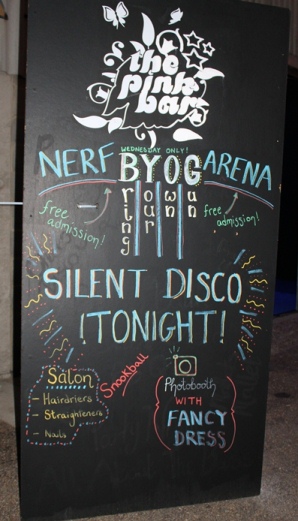 the
pink
bar
WEDNESDAY ONLY!
NERF BYOG ARENA
Bring Your Own Gun
free admission!
free admission!
SILENT DISCO
!TONIGHT!
Salon
- Hairdriers
- Straighteners
- Nails
Snookball
Photobooth
WITH
FANCY
DRESS